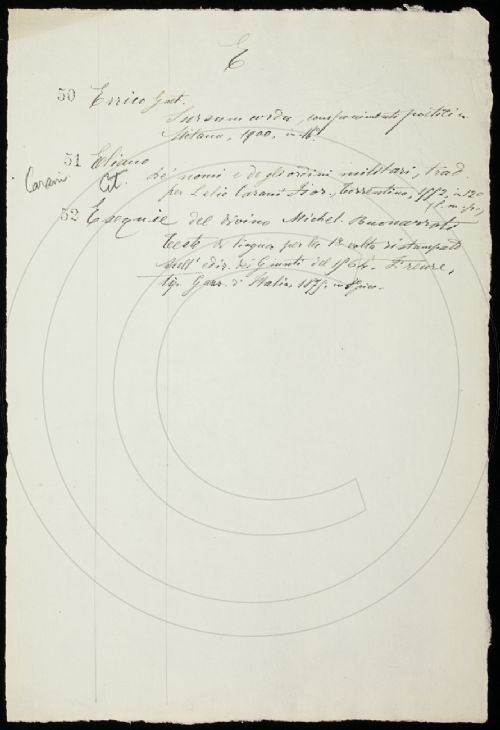 E
50 Errico Gius.
Sursum corda, componimenti poetici
Milano, 1900. in 16°.
51 Eliano
Carani Cit. De' nomi e degli ordini militari, trad.
per Lelio Carani Fior., Torrentino, 1552, in 12°
52 Esequie del divino Michel. Buonarroti
Testo di lingua per la 1a volta ristampato
sull' ediz. dei Giunti del 1564. Firenze,
tip. Gazz. d' Italia, 1875. in